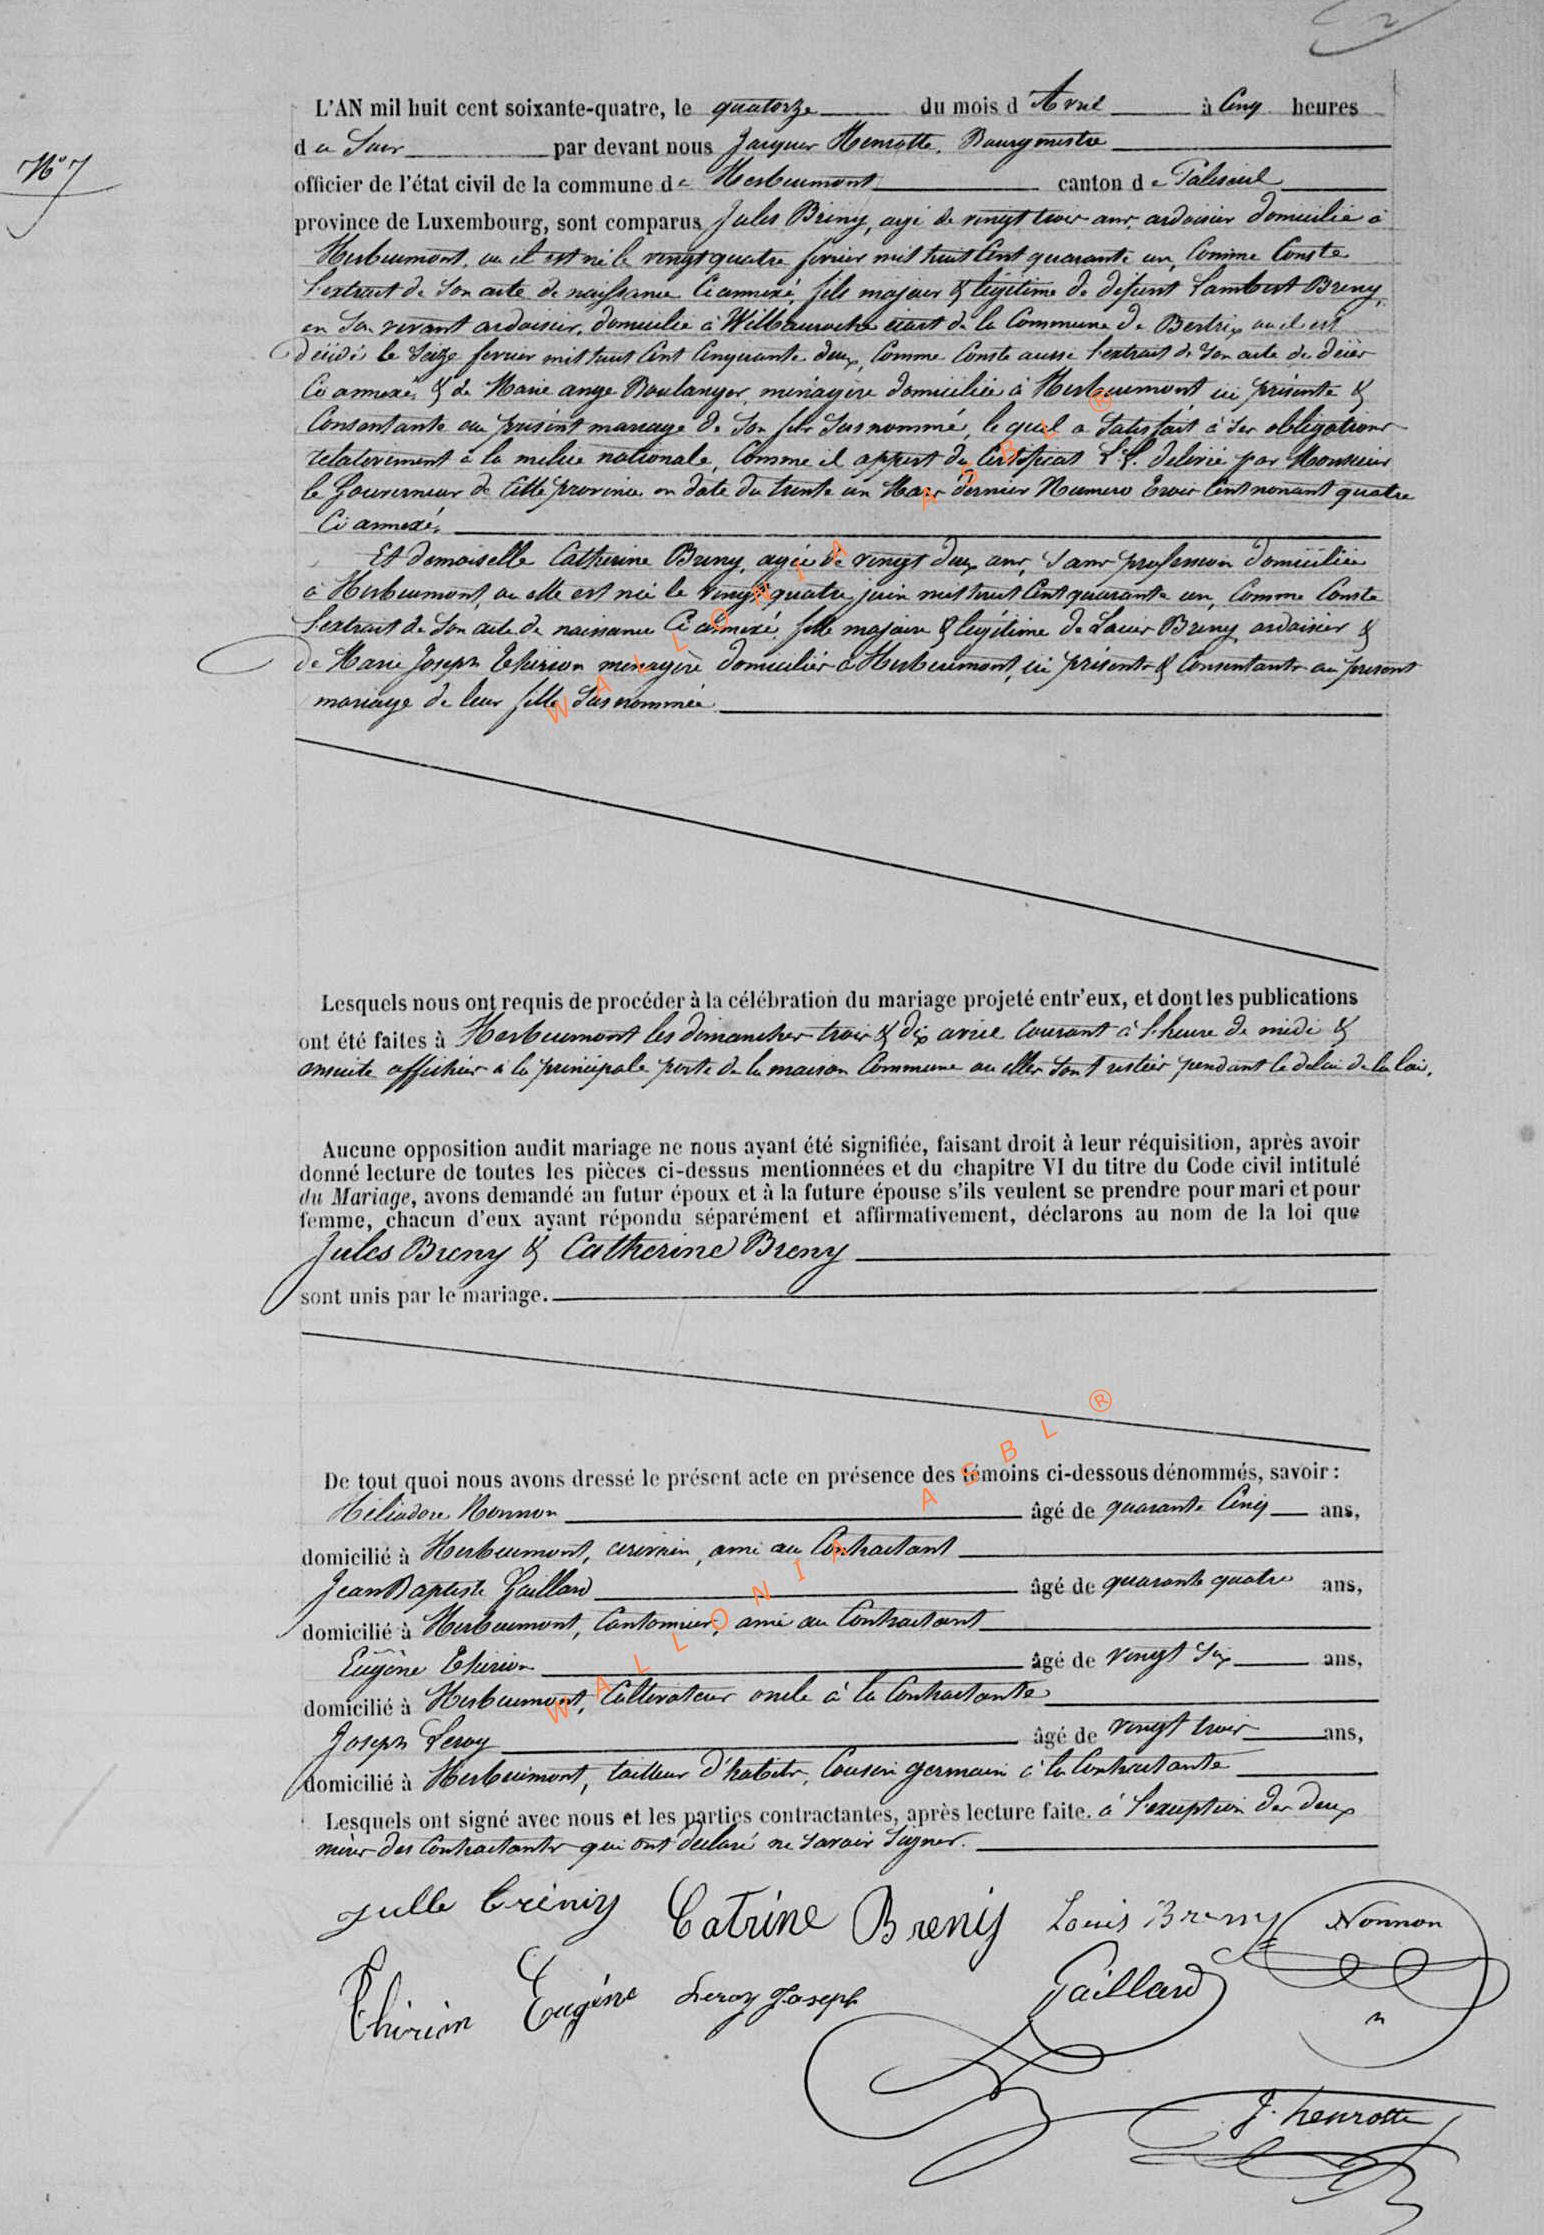 2
N° 7
L'AN mil huit cent soixante-quatre, le quatorze du mois d'Avril à Cinq heures
du Soir par devant nous Jacques Henrotte, Bourgmestre
officier de l'état civil de la commune de Herbeumont canton de Paliseul
province de Luxembourg, sont comparus Jules Breny, agé de vingt trois ans, ardoisier domicilié à
Herbeumont, ou il est né le vingt quatre fevrier mil huit Cent quarante un, Comme Conste
l'extrait de Son acte de naissance Ci annexé, fils majeur & légitime de défunt Lambert Breny,
en Son vivant ardoisier, domicilié à Wilbauroche écart de la Commune de Bertrix ou il est
décédé le Seize fevrier mil huit Cent Cinquante deux, Comme Conste aussi l'extrait de Son acte de décès
Ci annexé, & de Marie ange Boulanger, ménagère domiciliée à Herbeumont ici présente &
Consentante au présent mariage de Son fils Susnommé, le quel a Satisfait à Ses obligations
relativement à la milice nationale, Comme il appert du Certificat délivré par Monsieur
le Gouverneur de Cette province en date du trente un Mars dernier Numero trois Cent nonant quatre
Ci annexé.
Et demoiselle Catherine Breny, agée de vingt deux ans, Sans profession domiciliée
à Herbeumont, ou elle est née le vingt quatre juin mil huit Cent quarante un, Comme Conste
l'extrait de Son acte de naissance Ci annexé fille majeure & légitime de Louis Breny ardoisier &
de Marie Joseph Thirion ménagère domiciliés à Herbeumont, ici présents & Consentants au présent
mariage de leur fille Susnommée
Lesquels nous ont requis de procéder à la célébration du mariage projeté entr'eux, et dont les publications
ont été faites à Herbeumont les dimanches trois & dix avril Courant à l'heure de midi &
ensuite affichées à la principale porte de la maison Commune ou elles Sont restées pendant le délai de la loi.
Aucune opposition audit mariage ne nous ayant été signifiée, faisant droit à leur réquisition, après avoir
donné lecture de toutes les pièces ci-dessus mentionnées et du chapitre VI du titre du Code civil intitulé
du Mariage, avons demandé au futur époux et à la future épouse s'ils veulent se prendre pour mari et pour
femme, chacun d'eux ayant répondu séparément et affirmativement, déclarons au nom de la loi que
Jules Breny & Catherine Breny
sont unis par le mariage.
De tout quoi nous avons dressé le présent acte en présence des témoins ci-dessous dénommés, savoir :
Héliodore Nonnon âgé de quarante Cinq ans,
domicilié à Herbeumont, écrivain, ami au Contractant
Jean Baptiste Gaillard âgé de quarante quatre ans,
domicilié à Herbeumont, Cantonnier, ami au Contractant
Eugène Thirion âgé de vingt Six ans,
domicilié à Herbeumont, Cultivateur oncle à la Contractante
Joseph Leroy âgé de vingt trois ans,
domicilié à Herbeumont, tailleur d'habits, Cousin germain à la Contractante
Lesquels ont signé avec nous et les parties contractantes, après lecture faite. à l'exception des deux
mères des Contractants qui ont déclaré ne Savoir Signer.
Julle breniy Catrine Breniy Louis Breny Nonnon
Thirion Eugéne Leroy Joseph Gaillard
J. henrotte
WALLONIA ASBL ®
WALLONIA ASBL ®